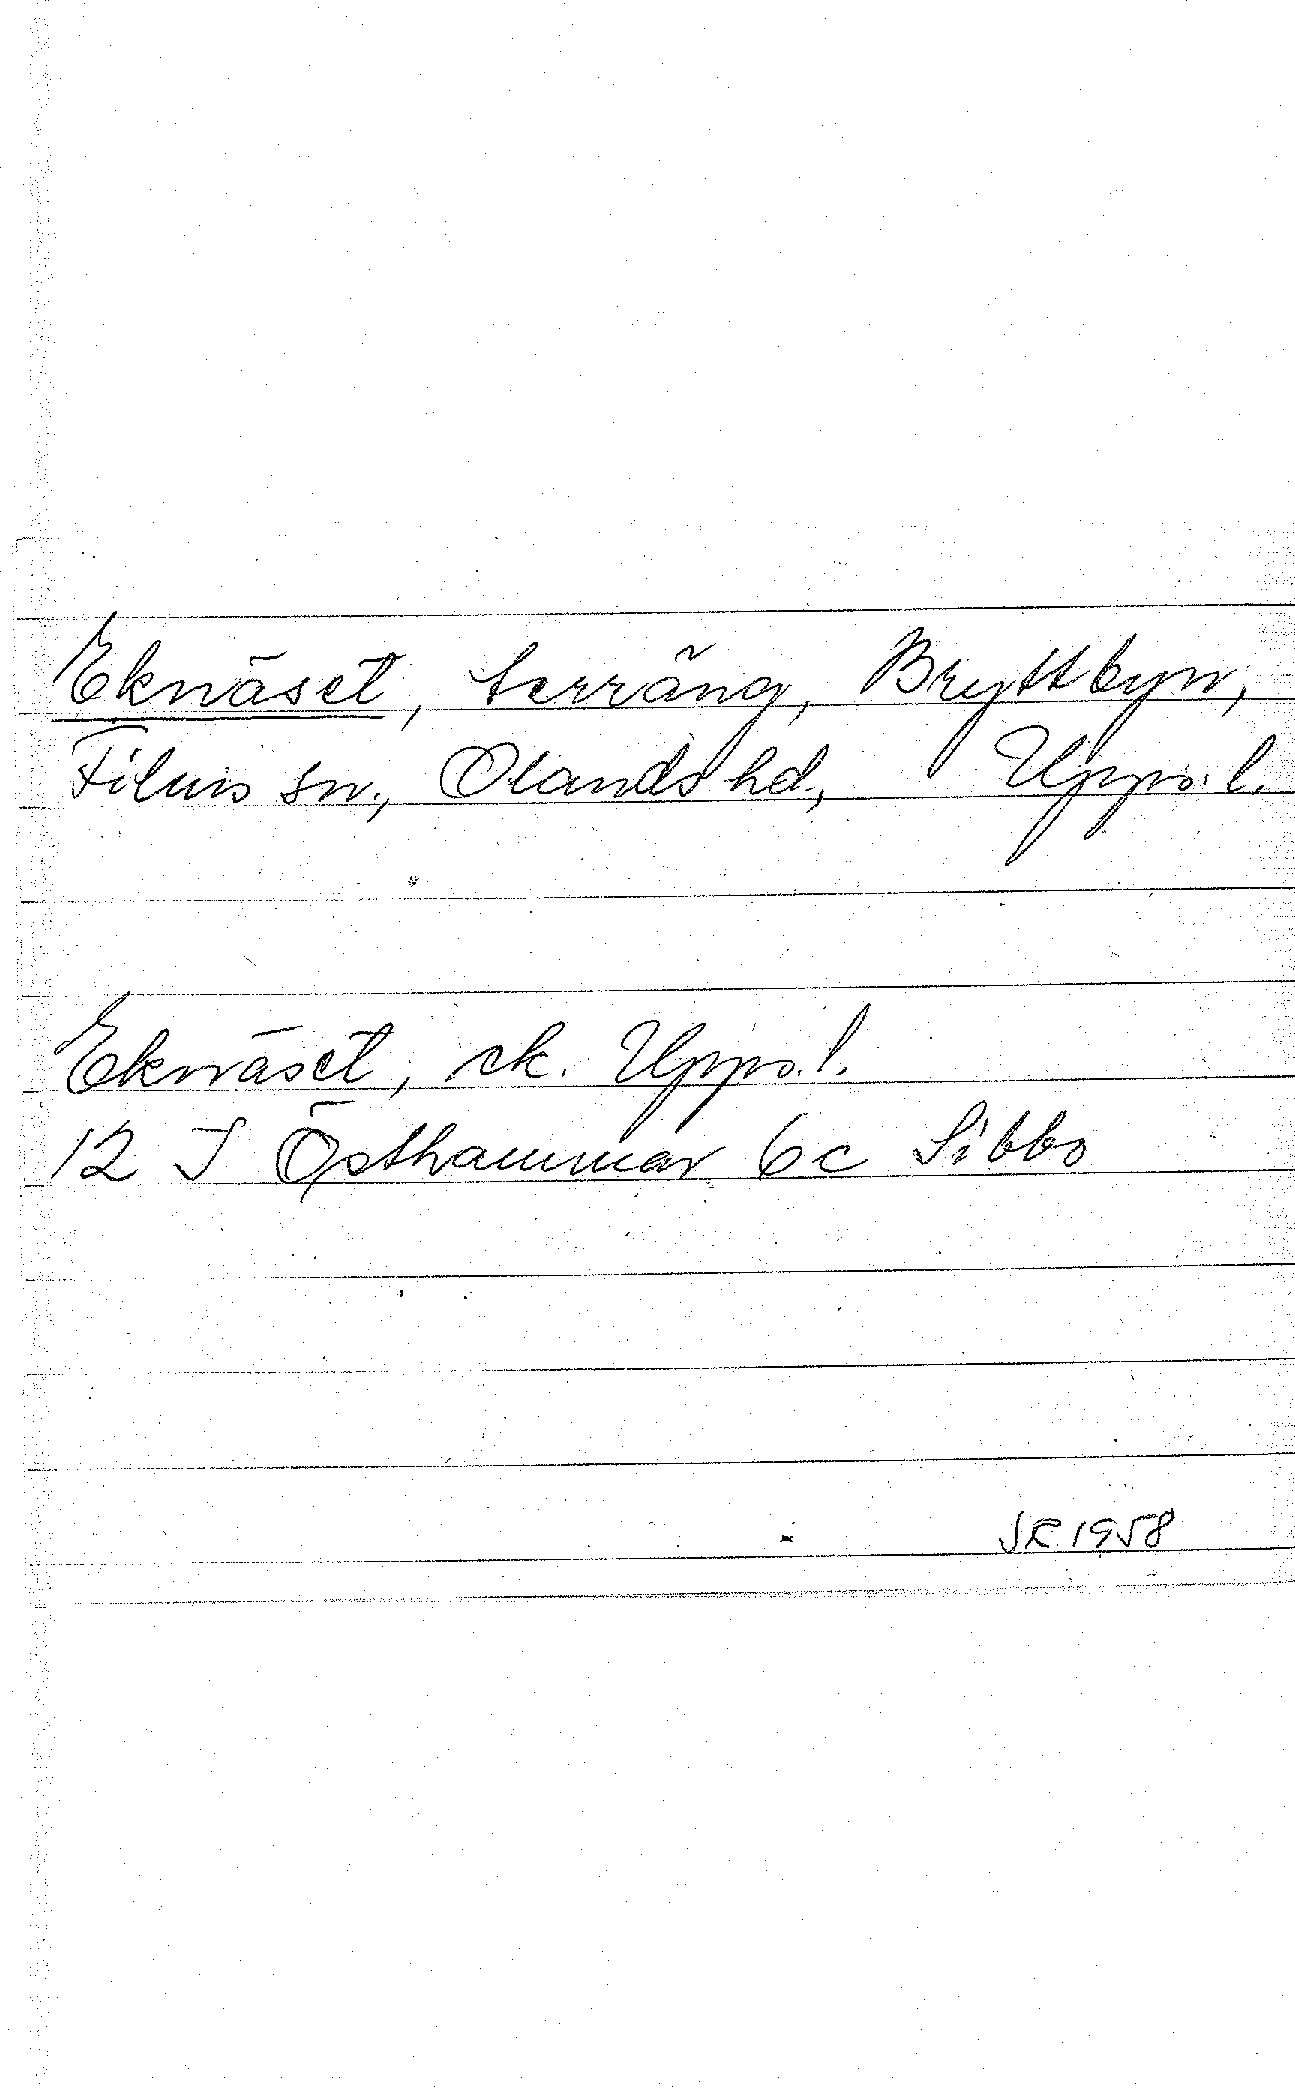 Eknäset, terräng, Bryttbyn,
Films sn., Olands hd., Upps. l.
Eknäset, ek. Upps. l.
12 I Östhammar 6c Sibbo
SR 1958